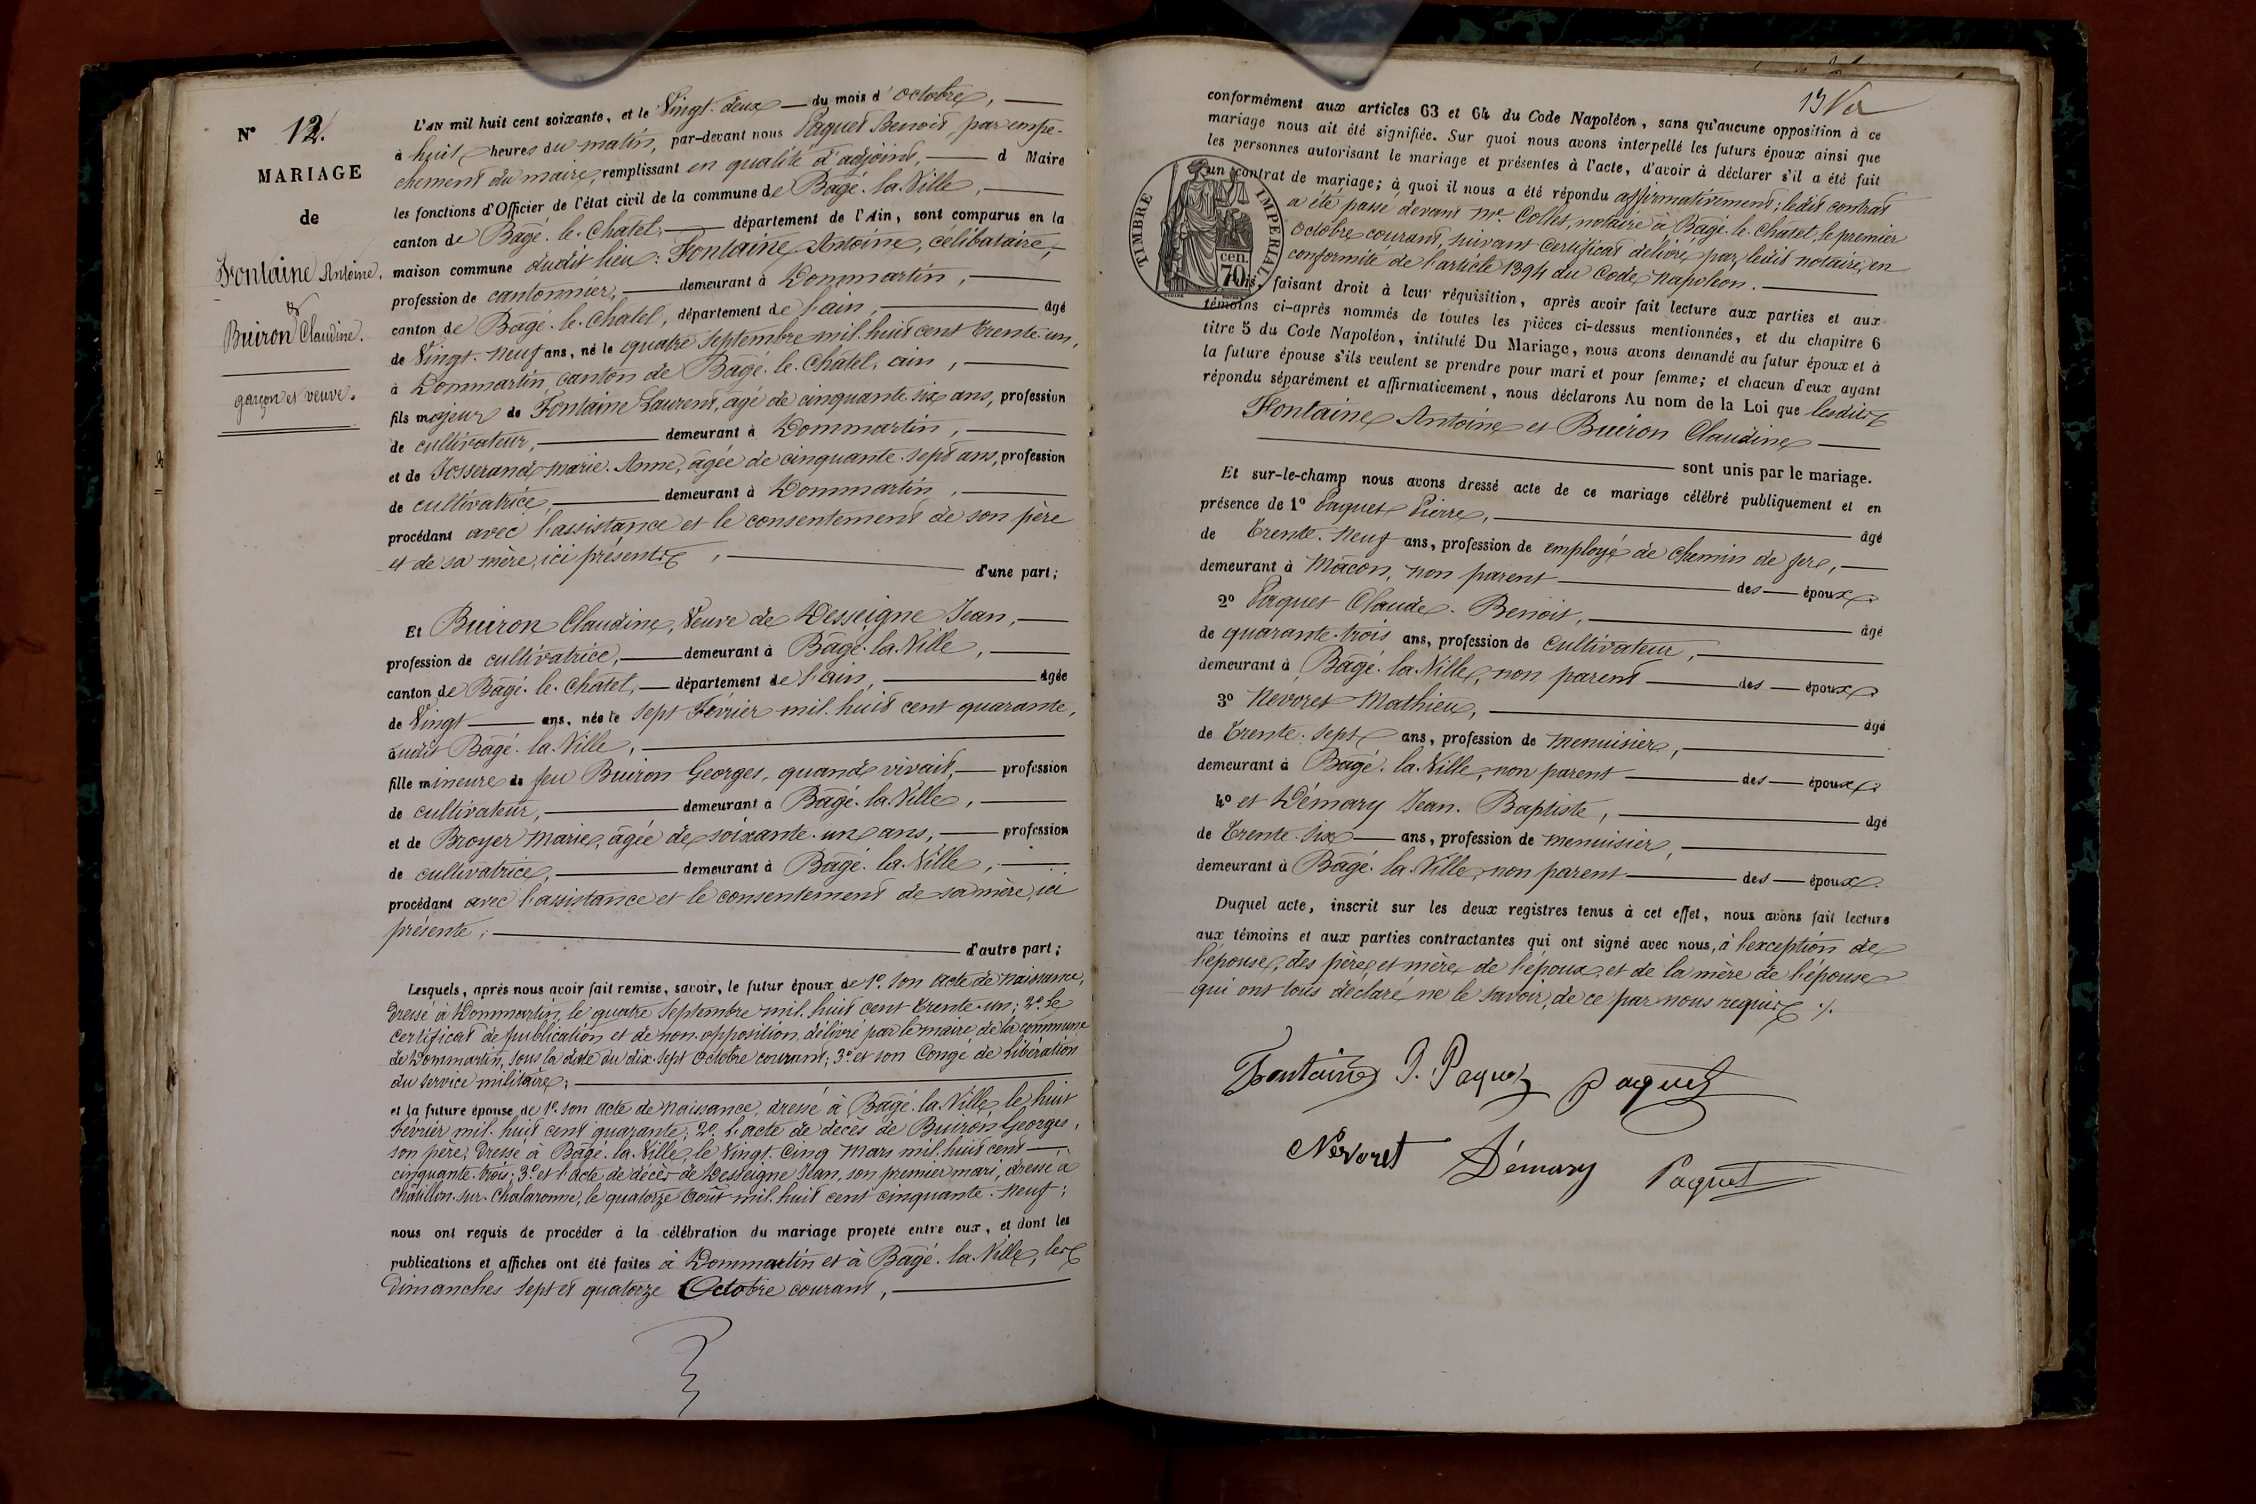 N° 12.
MARIAGE
de
Fontaine Antoine.
&
Buiron Claudine.
garçon et veuve.
L'AN mil huit cent soixante, et le Vingt-deux du mois d'Octobre,
à huit heures du matin, par-devant nous Paquet Benoit, par empê-
chement du maire, remplissant en qualité d'adjoint, d Maire
les fonctions d'Officier de l'état civil de la commune de Bâgé-la-Ville,
canton de Bâgé-le-Chatel, département de l'Ain, sont comparus en la
maison commune dudit lieu: Fontaine Antoine, célibataire,
profession de cantonnier, demeurant à Dommartin,
canton de Bâgé-le-Chatel, département de l'ain, âgé
de Vingt-neuf ans, né le quatre Septembre mil-huit cent trente-un,
à Dommartin, canton de Bâgé-le-Chatel, ain,
fils majeur de Fontaine Laurent, âgé de cinquante six ans, profession
de cultivateur, demeurant à Dommartin,
et de Josserand marie-Anne, âgée de cinquante-sept ans, profession
de cultivatrice, demeurant à Dommartin,
procédant avec l'assistance et le consentement de son père
et de sa mère, ici présents,
d'une part;
Et Buiron Claudine, Veuve de Desseigne Jean,
profession de cultivatrice, demeurant à Bâgé-la-Ville,
canton de Bâgé-le-Chatel, département de l'ain, âgée
de Vingt ans, née le sept Février mil-huit cent quarante,
audit Bâgé-la-Ville,
fille mineure de feu Buiron Georges, quand vivait, profession
de cultivateur, demeurant à Bâgé-la-Ville,
et de Broyer Marie, âgée de soixante-un ans, profession
de cultivatrice, demeurant à Bâgé-la-Ville,
procédant avec l'assistance et le consentement de sa mère, ici
présente,
d'autre part;
Lesquels, après nous avoir fait remise, savoir, le futur époux de 1° son acte de naissance,
dressé à Dommartin, le quatre Septembre mil-huit cent trente-un; 2° le
certificat de publication et de non-opposition délivré par le maire de la commune
de Dommartin, sous la date du dix-sept Octobre courant; 3° et son Congé de Libération
du service militaire;
et la future épouse de 1° son acte de naissance, dressé à Bâgé-la-Ville, le huit
Février mil-huit cent quarante; 2° l'acte de décès de Buiron Georges,
son père, Dressé à Bâgé-la-Ville, le Vingt-Cinq Mars mil-huit cent
cinquante-trois; 3° et l'acte de décès de Desseigne Jean, son premier mari, dressé à
Châtillon-sur-Chalaronne, le quatorze Août mil-huit cent cinquante-neuf;
nous ont requis de procéder à la célébration du mariage projeté entre eux, et dont les
publications et affiches ont été faites à Dommartin et à Bâgé-la-Ville, les
Dimanches Sept et quatorze Octobre courant,
conformément aux articles 63 et 64 du Code Napoléon, sans qu'aucune opposition à ce
mariage nous ait été signifiée. Sur quoi nous avons interpellé les futurs époux ainsi que
les personnes autorisant le mariage et présentes à l'acte, d'avoir à déclarer s'il a été fait
un contrat de mariage; à quoi il nous a été répondu affirmativement; ledit contrat
a été passé devant Me Collet, notaire à Bâgé-le-Chatel, le premier
Octobre courant, suivant Certificat délivré par ledit notaire, en
conformité de l'article 1394 du Code Napoléon.
TIMBRE IMPERIAL
70 cen.
faisant droit à leur réquisition, après avoir fait lecture aux parties et aux
témoins ci-après nommés de toutes les pièces ci-dessus mentionnées, et du chapitre 6
titre 5 du Code Napoléon, intitulé Du Mariage, nous avons demandé au futur époux et à
la future épouse s'ils veulent se prendre pour mari et pour femme; et chacun d'eux ayant
répondu séparément et affirmativement, nous déclarons Au nom de la Loi que lesdits
Fontaine Antoine et Buiron Claudine
sont unis par le mariage.
Et sur-le-champ nous avons dressé acte de ce mariage célébré publiquement et en
présence de 1° Paquet Pierre, âgé
de Trente-neuf ans, profession de employé de chemin de fer,
demeurant à Mâcon, non parent des époux
2° Paquet Claude-Benoit, âgé
de quarante-trois ans, profession de Cultivateur,
demeurant à Bâgé-la-Ville, non parent des époux
3° Nevoret Mathieu, âgé
de Trente-sept ans, profession de menuisier,
demeurant à Bâgé-la-Ville, non parent des époux
4° et Démary Jean-Baptiste, âgé
de Trente-six ans, profession de menuisier,
demeurant à Bâgé-la-Ville, non parent des époux
Duquel acte, inscrit sur les deux registres tenus à cet effet, nous avons fait lecture
aux témoins et aux parties contractantes qui ont signé avec nous, à l'exception de
l'épouse, des père et mère de l'époux, et de la mère de l'épouse
qui ont tous déclaré ne le savoir, de ce par nous requis ./.
Fontaine P. Paquet Paquet
Nevoret Démary Paquet